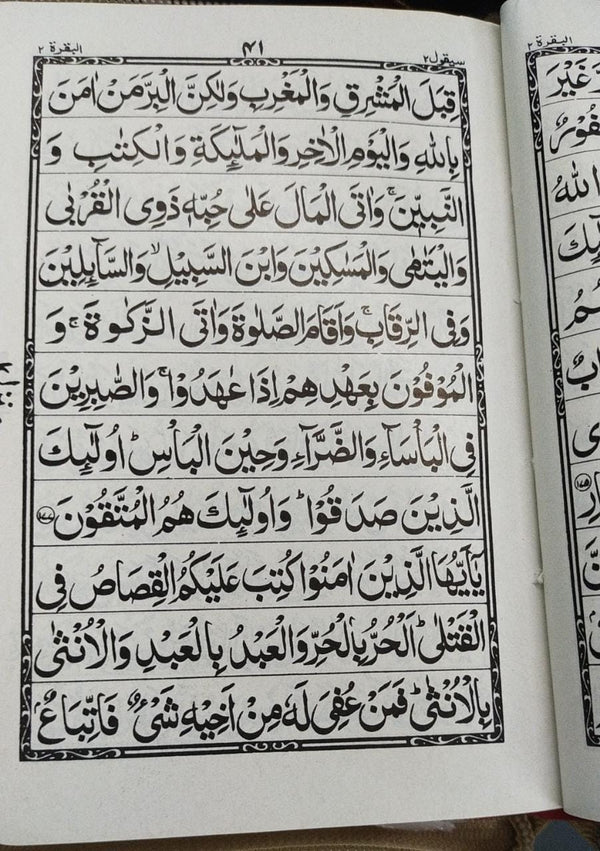 سيقول ٢ ٤١ البقرة ٢
قِبَلَ الْمَشْرِقِ وَالْمَغْرِبِ وَلٰكِنَّ الْبِرَّ مَنْ اٰمَنَ
بِاللّٰهِ وَالْيَوْمِ الْاٰخِرِ وَالْمَلٰٓئِكَةِ وَالْكِتٰبِ وَ
النَّبِيّٖنَ ۚ وَاٰتَى الْمَالَ عَلٰى حُبِّهٖ ذَوِى الْقُرْبٰى
وَالْيَتٰمٰى وَالْمَسٰكِيْنَ وَابْنَ السَّبِيْلِ ۙ وَالسَّآئِلِيْنَ
وَفِى الرِّقَابِ ۚ وَاَقَامَ الصَّلٰوةَ وَاٰتَى الزَّكٰوةَ ۚ وَ
الْمُوْفُوْنَ بِعَهْدِهِمْ اِذَا عٰهَدُوْا ۚ وَالصّٰبِرِيْنَ
فِى الْبَاْسَآءِ وَالضَّرَّآءِ وَحِيْنَ الْبَاْسِ ؕ اُولٰٓئِكَ
الَّذِيْنَ صَدَقُوْا ؕ وَاُولٰٓئِكَ هُمُ الْمُتَّقُوْنَ ﴿۱۷۷﴾
يٰٓاَيُّهَا الَّذِيْنَ اٰمَنُوْا كُتِبَ عَلَيْكُمُ الْقِصَاصُ فِى
الْقَتْلٰى ؕ اَلْحُرُّ بِالْحُرِّ وَالْعَبْدُ بِالْعَبْدِ وَالْاُنْثٰى
بِالْاُنْثٰى ؕ فَمَنْ عُفِىَ لَهٗ مِنْ اَخِيْهِ شَىْءٌ فَاتِّبَاعٌۢ
البقرة ٢
غَيْرَ
اللّٰهُ